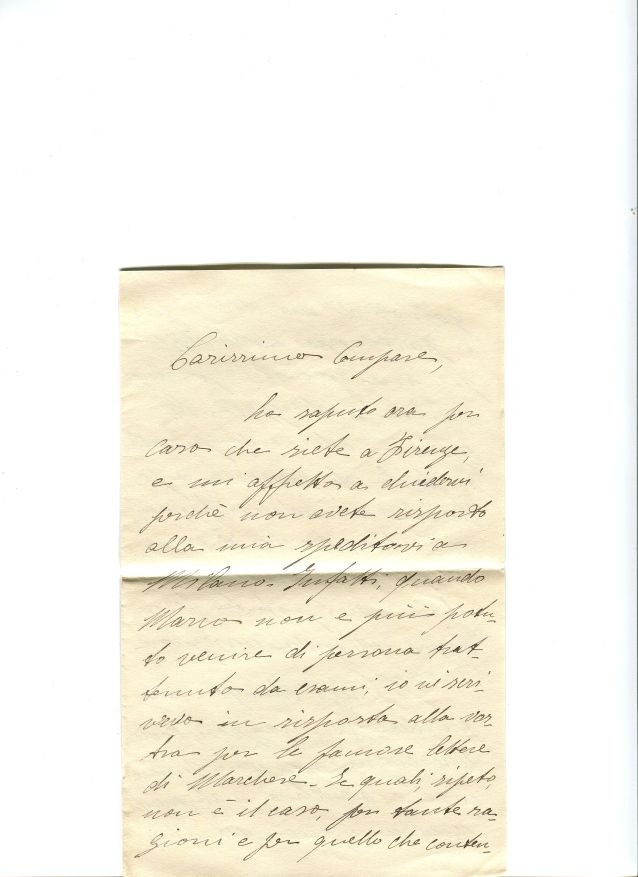 Carissimo Compare,
ho saputo ora per
caso che siete a Firenze,
e mi affretto a chiedervi
perchè non avete risposto
alla mia speditavi a
Milano. Infatti, quando
Mario non è più potu-
to venire di persona trat-
tenuto da esami, io vi scri-
vevo in risposta alla vos-
tra per le famose lettere
di Marchese. Le quali, ripeto,
non è il caso, per tante ra-
gioni e per quello che conten-